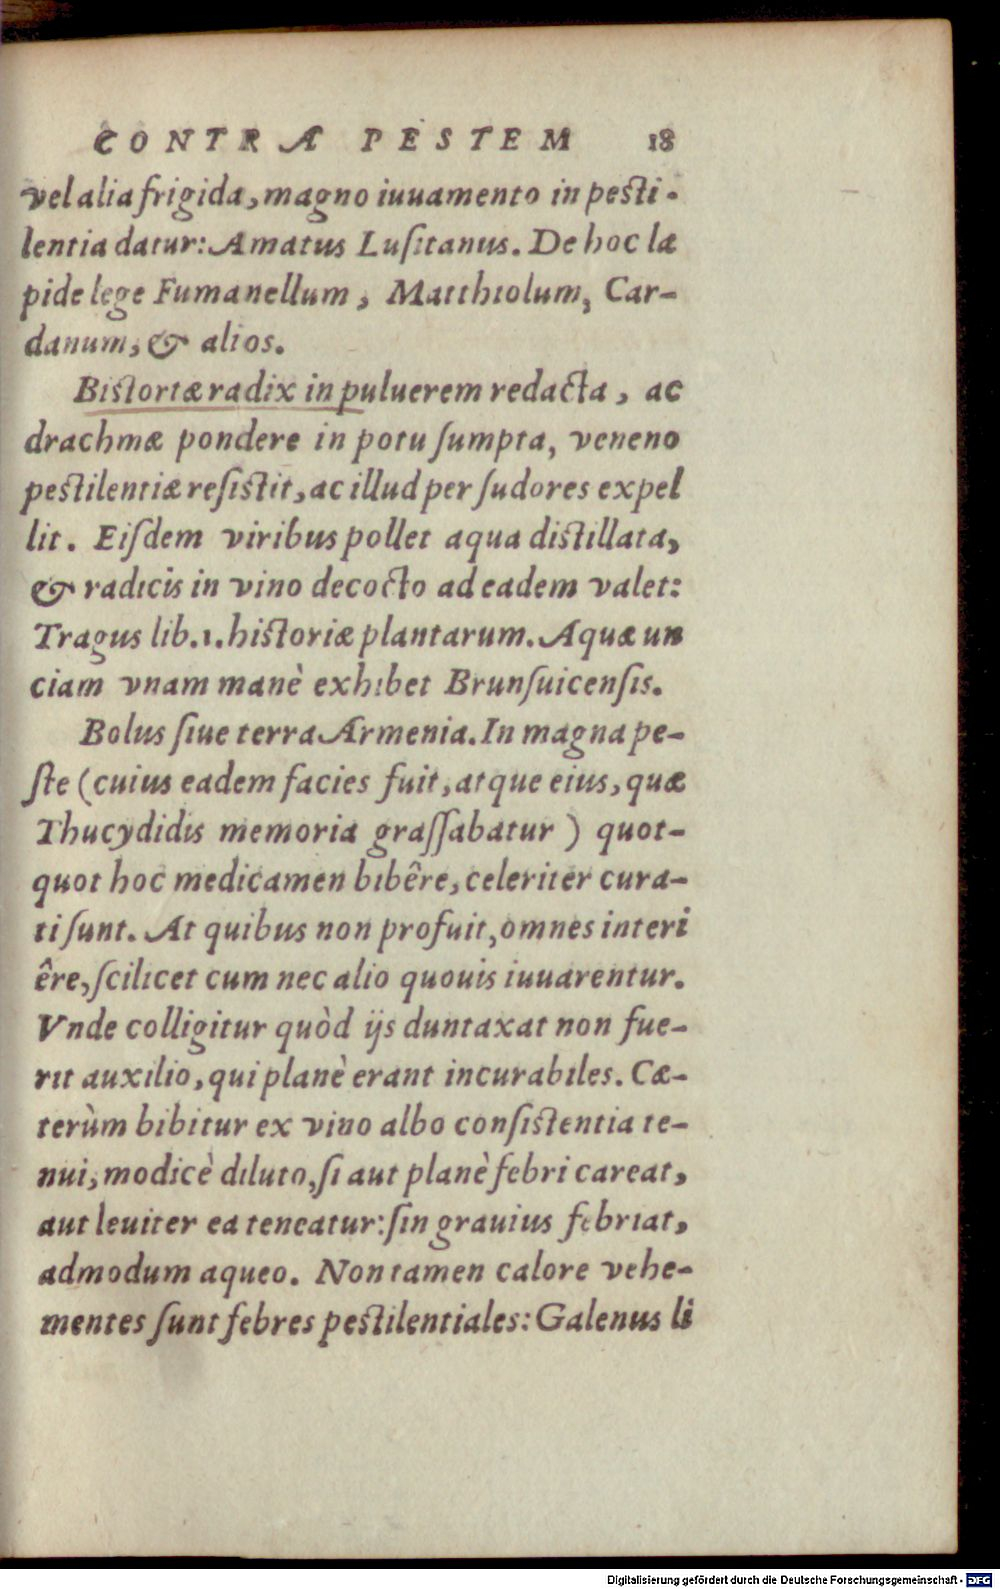 CONTRA PESTEM 18
vel alia frigida, magno iuuamento in pesti-
lentia datur: Amatus Lusitanus. De hoc la
pide lege Fumanellum, Matthiolum, Car-
danum, & alios.
Bistortæ radix in puluerem redacta, ac
drachmæ pondere in potu sumpta, veneno
pestilentiæ resistit, ac illud per sudores expel
lit. Eisdem viribus pollet aqua distillata,
& radicis in vino decocto ad eadem valet:
Tragus lib.1. historiæ plantarum. Aquæ un
ciam vnam manè exhibet Brunsuicensis.
Bolus siue terra Armenia. In magna pe-
ste (cuius eadem facies fuit, atque eius, quæ
Thucydidis memoria grassabatur) quot-
quot hoc medicamen bibêre, celeriter cura-
ti sunt. At quibus non profuit, omnes interi
êre, scilicet cum nec alio quouis iuuarentur.
Vnde colligitur quòd ijs duntaxat non fue-
rit auxilio, qui planè erant incurabiles. Cæ-
terùm bibitur ex vino albo consistentia te-
nui, modicè diluto, si aut planè febri careat,
aut leuiter ea teneatur: sin grauius febriat,
admodum aqueo. Non tamen calore vehe-
mentes sunt febres pestilentiales: Galenus li
Digitalisierung gefördert durch die Deutsche Forschungsgemeinschaft - DFG